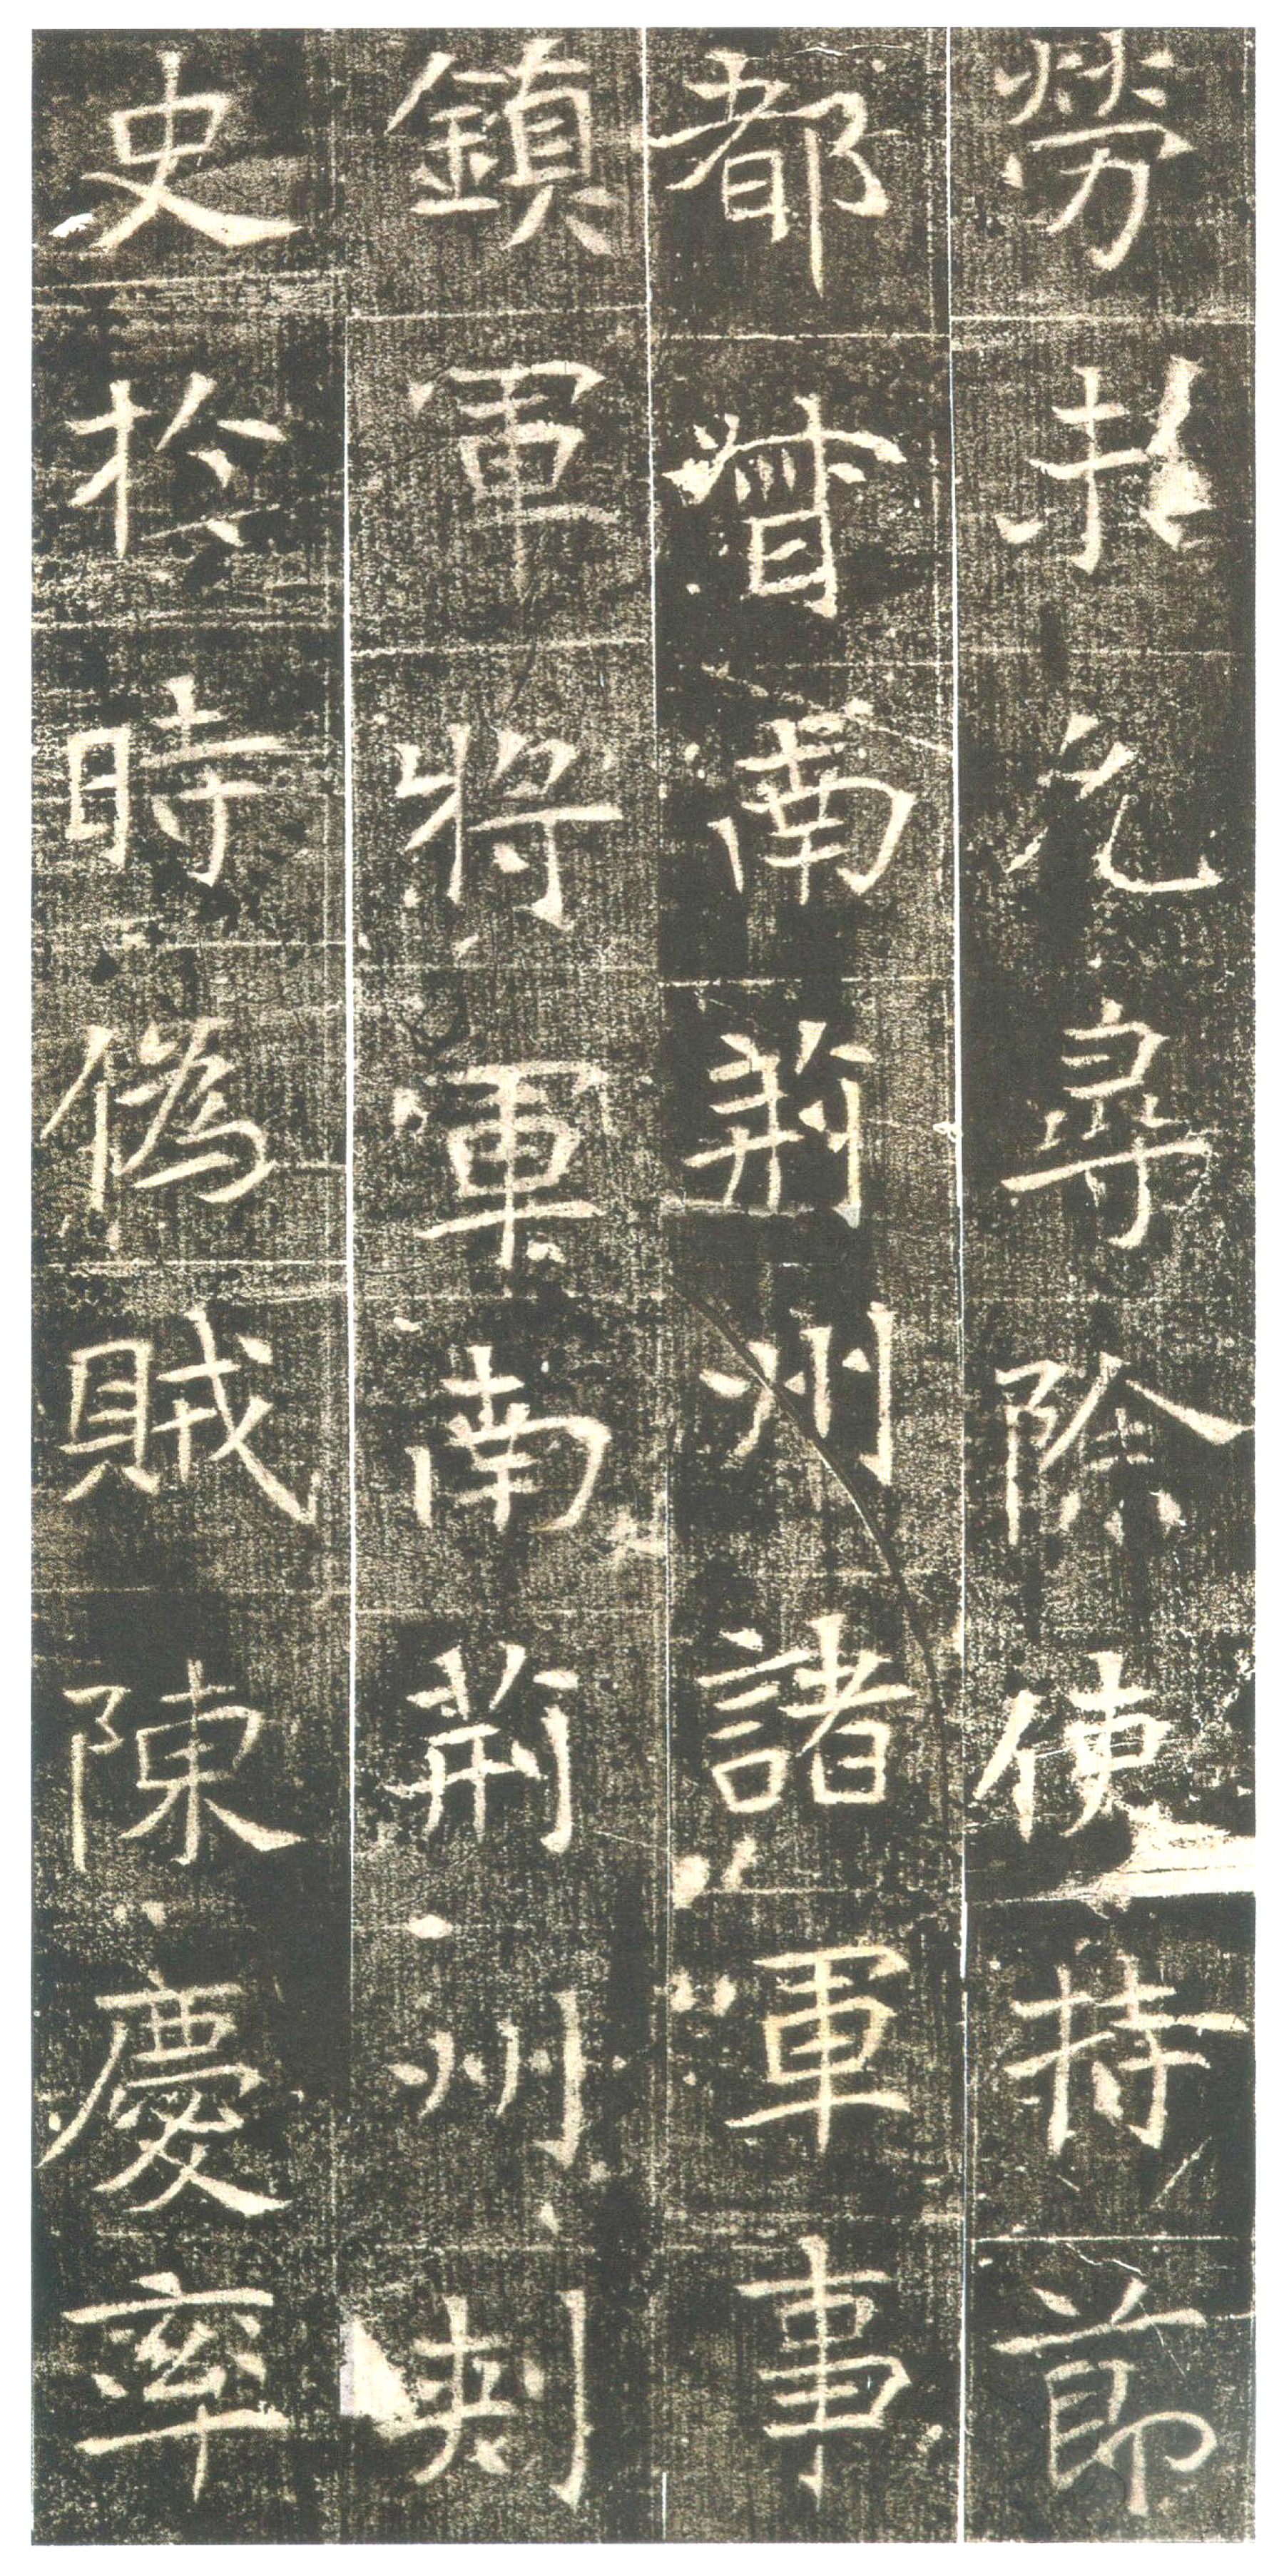 勞允尋除使持節
都督南荊州諸軍事
鎮軍將軍南荊州刾
史扵時偽賊陳慶率